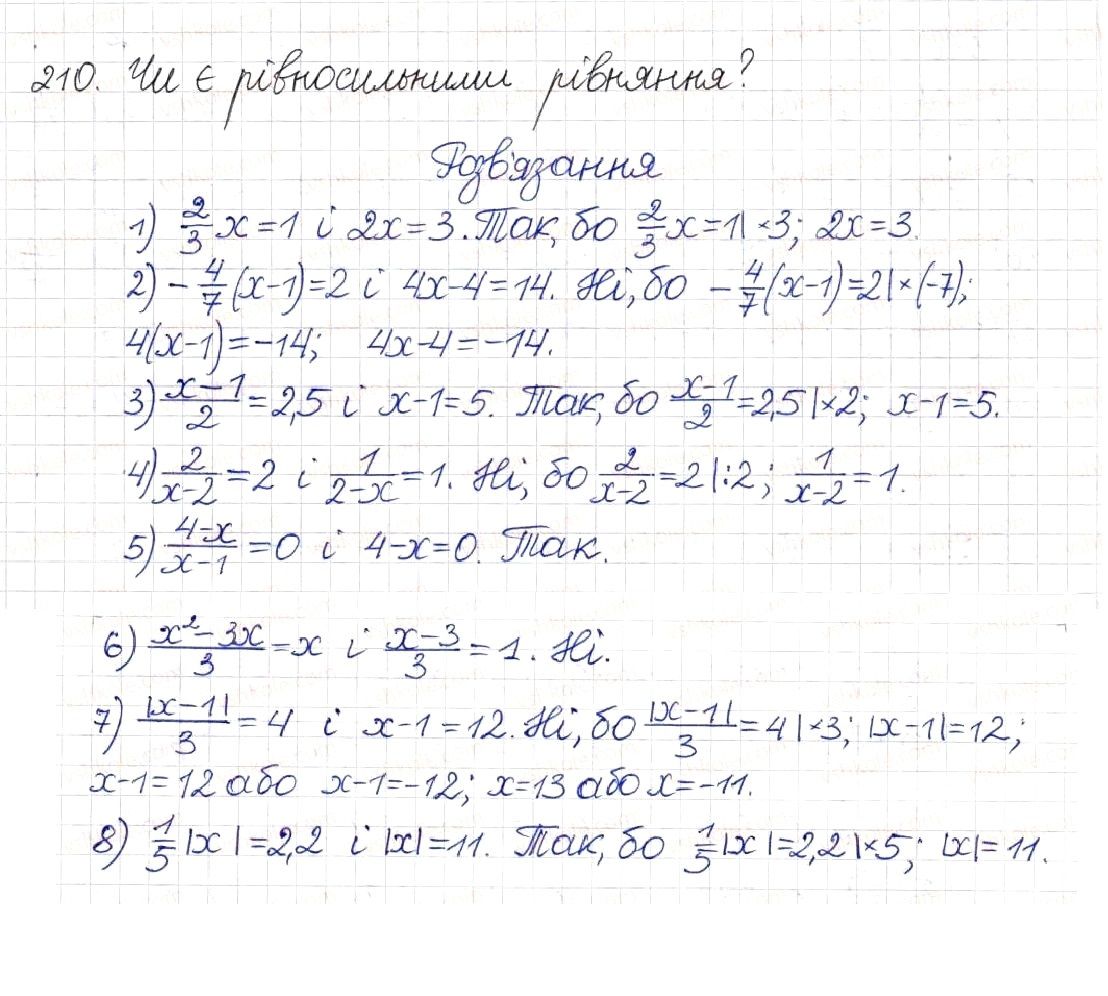 210. Чи є рівносильними рівняння?
Розв'язання
1) 2/3 x = 1 і 2x = 3. Так, бо 2/3 x = 1 | ×3; 2x = 3.
2) - 4/7 (x-1) = 2 і 4x-4 = 14. Ні, бо - 4/7 (x-1) = 2 | × (-7);
4(x-1) = -14; 4x-4 = -14.
3) (x-1)/2 = 2,5 і x-1 = 5. Так, бо (x-1)/2 = 2,5 | ×2; x-1 = 5.
4) 2/(x-2) = 2 і 1/(2-x) = 1. Ні, бо 2/(x-2) = 2 | :2; 1/(x-2) = 1.
5) (4-x)/(x-1) = 0 і 4-x = 0. Так.
6) (x²-3x)/3 = x і (x-3)/3 = 1. Ні.
7) |x-1|/3 = 4 і x-1 = 12. Ні, бо |x-1|/3 = 4 | ×3; |x-1| = 12;
x-1 = 12 або x-1 = -12; x = 13 або x = -11.
8) 1/5 |x| = 2,2 і |x| = 11. Так, бо 1/5 |x| = 2,2 | ×5; |x| = 11.